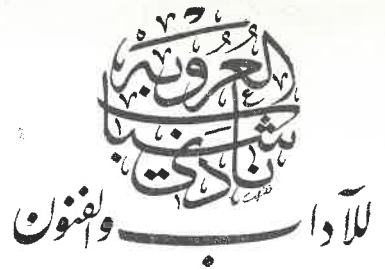 نادي شباب العروبة
للآداب والفنون